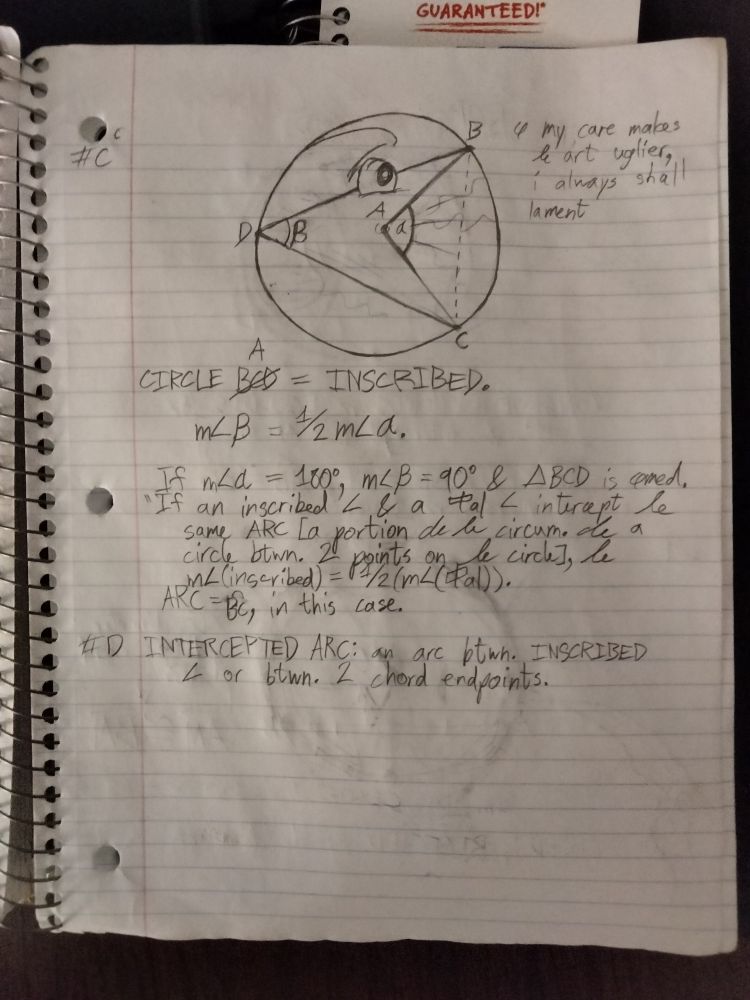 GUARANTEED!*
#C c
B
φ my care makes
le art uglier,
i always shall
lament
A
α
D
β
C
A
CIRCLE BCD = INSCRIBED.
m∠β = 1/2 m∠α.
If m∠α = 180°, m∠β = 90° & △BCD is
"If an inscribed ∠ & a ∠ intercept le
same ARC [a portion de le circum. de a
circle btwn. 2 points on le circle], le
m∠(inscribed) = 1/2(m∠(
ARC = BC, in this case.
#D INTERCEPTED ARC: an arc btwn. INSCRIBED
∠ or btwn. 2 chord endpoints.